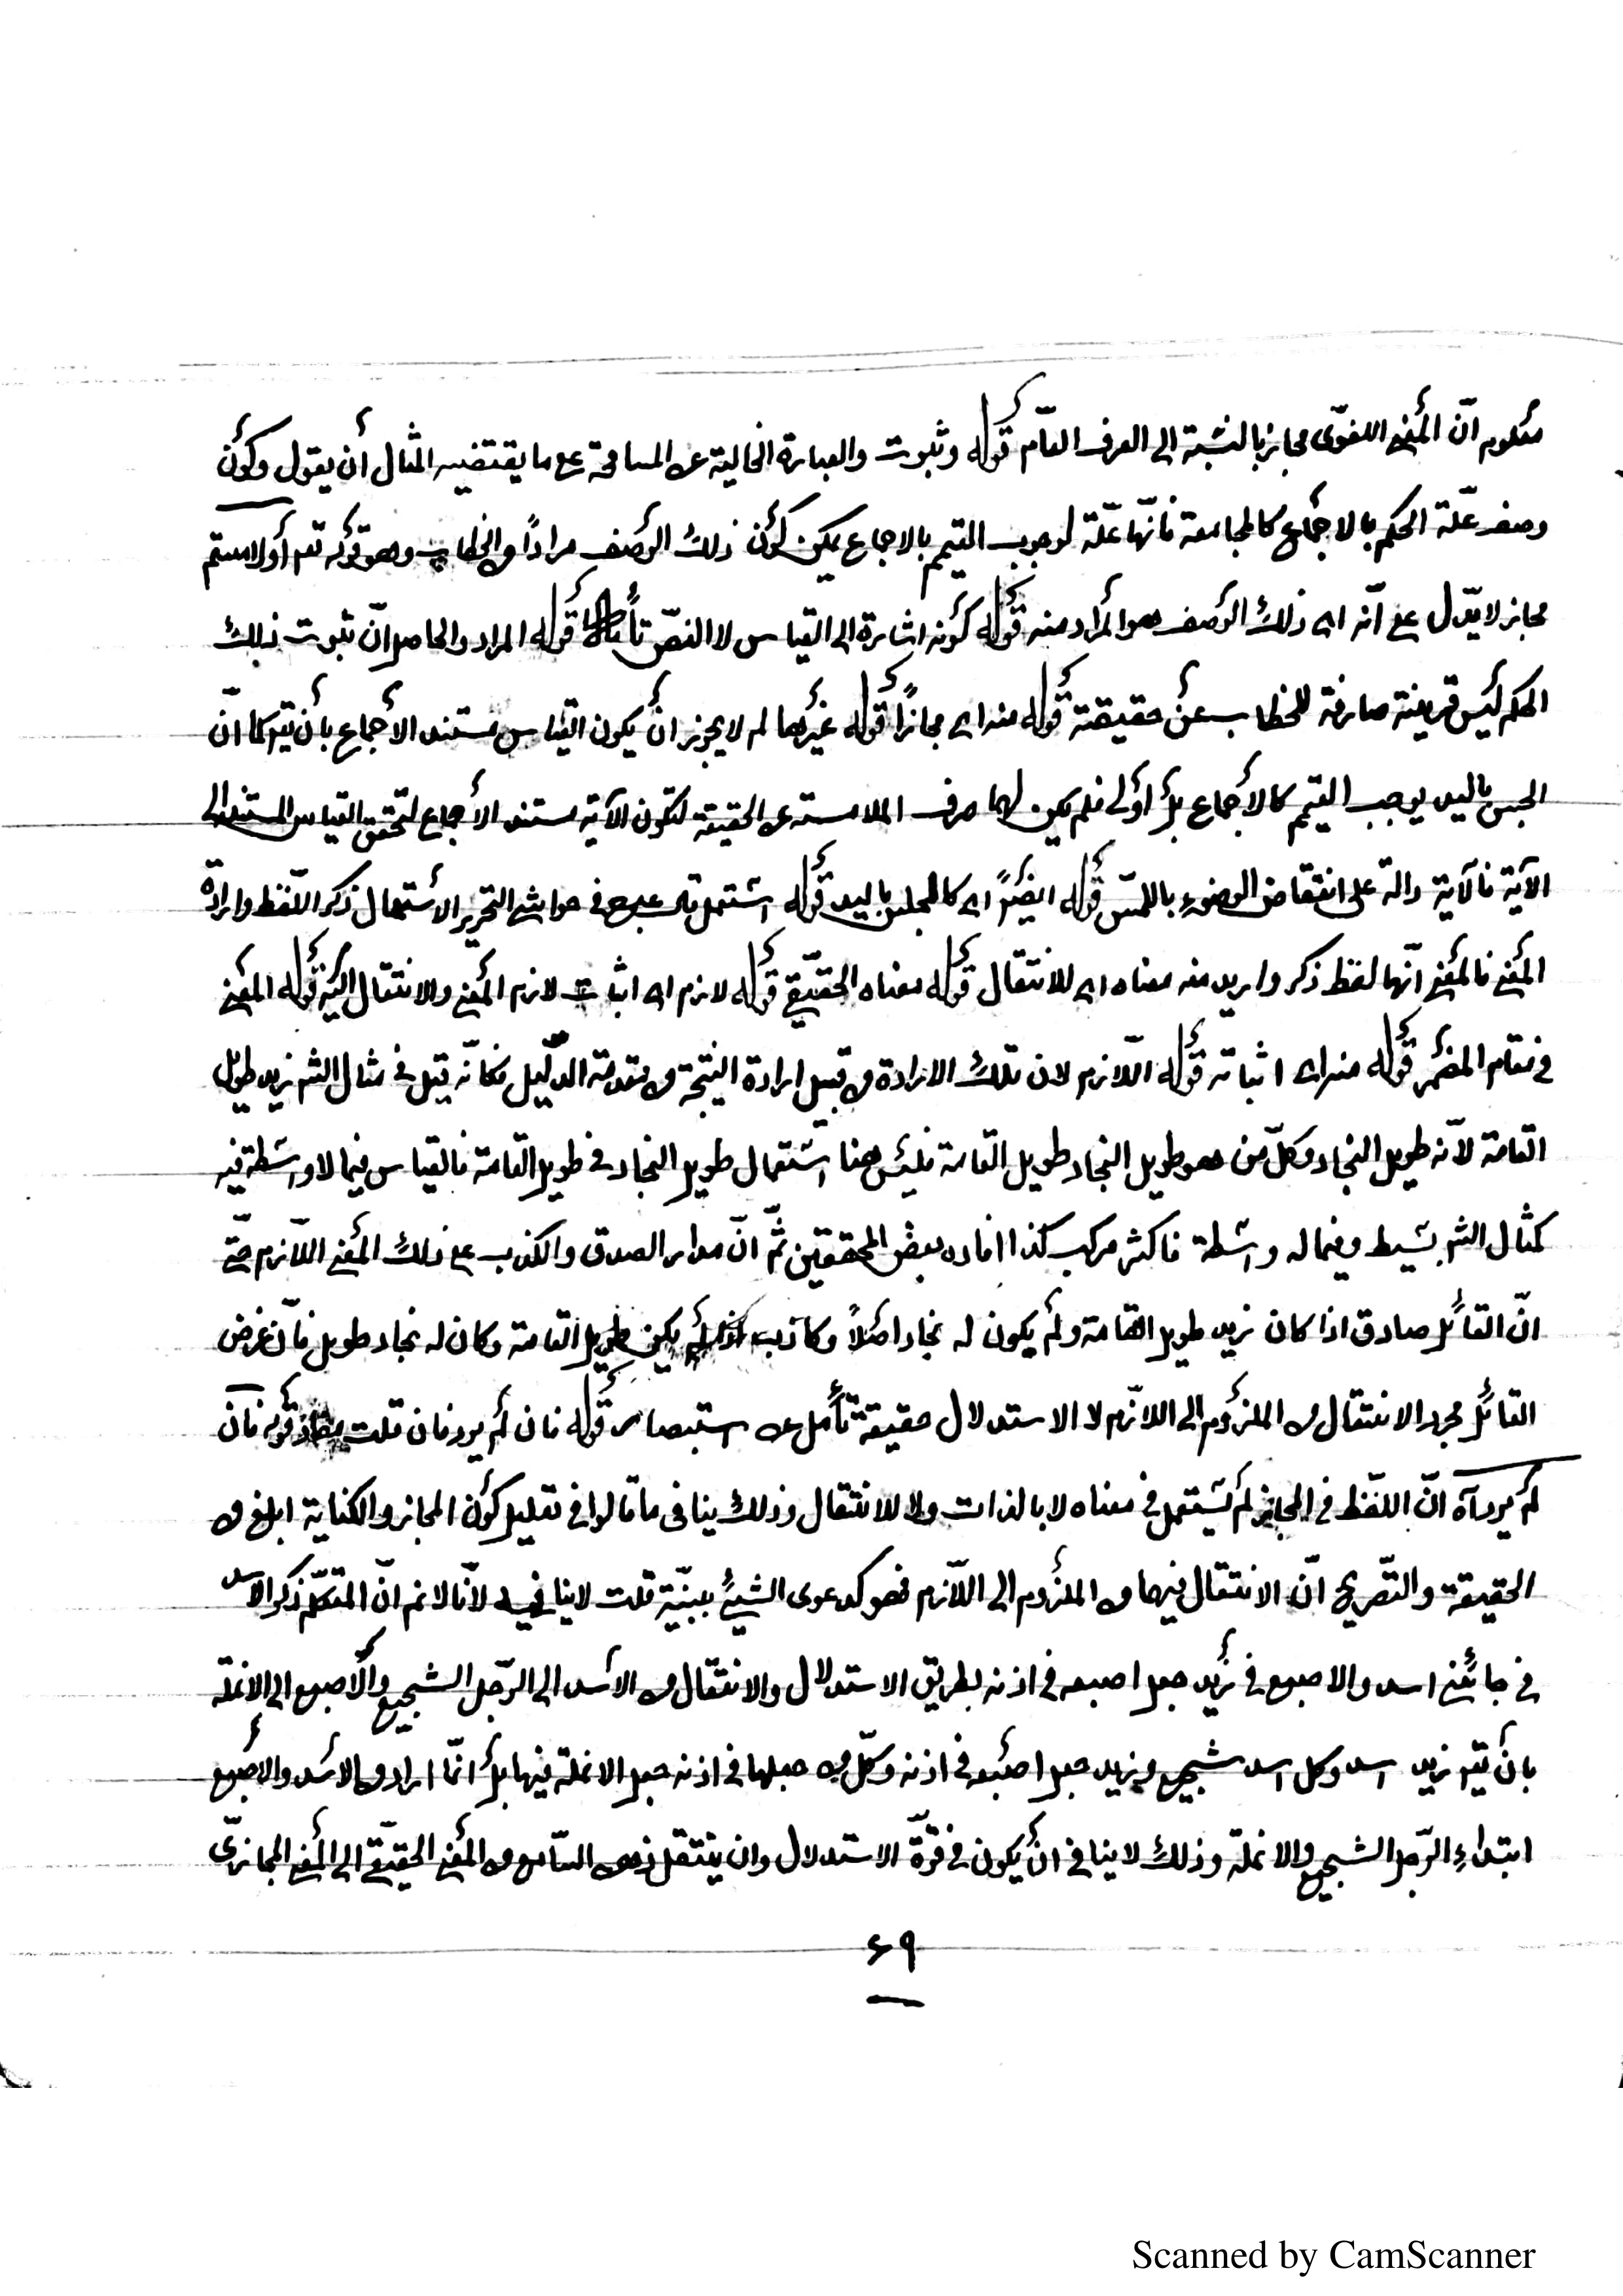 معلوم انّ المعنى اللغوّى مجاز بالنسْبة الى العرف العاّم قوله وثبوت والعبارة الخالية عن المسامحة على ما يقتضيه المثال أن يقول وكون
وصف علّة الحكم بالاجماع كالمجامعة فانّها علّة لوجوب التيمم بالاجماع يكون كون ذلك الوصف مرادًا من الخطاب وهو قوله تع أو لامستم
مجاز لا يدّل على انّه اى ذلك الوصف هو المراد منه قوله كونه اشارة الى القياس لا النصّ تأمل قوله المراد والحاصل انّ ثبوت ذلك
الحكم ليس قرينة صارفة للخطاب عن حقيقته قوله منه اى مجازًا قوله غيرهما لم لا يجوز ان يكون القياس مستند الأجماع بأن يقر كما انّ
الجس باليد يوجب التيمم كالأجماع بل اولى فلم يكن لهما صرف الملامسته عن الحقيقة لتكون الآية مستند الأجماع لتحقق القياس المستند الى
الآية فالآية دالة على انتقاض الوضوء باللمسّ قوله ايضًا اى كالجس باليد قوله اشتمل فى حواشى التحرير الأستعمال ذكر اللّفظ وارادة
المعنى فالمعنى انّها لفظ ذكر واريد منه معناه اى للانتقال قوله معناه الحقيّقى قوله لازم اى اثبات لازم المعنى والانتقال اليه قوله المعنى
فى مقام المضمر قوله منه اى اثباته قوله اللّازم لان تلك الارادة من قبيل ارادة النتيجة من مقدمة الدّليل فكانّه قيل فى مثال الشم زيد طويل
القامة لانّه طويل النجاد وكلّ من هو طويل النجاد طويل القامة فليس هنا استعمال طويل النجاد فى طويل القامة فالقياس فيما لا واسطة فيه
كمثال الشم بسيط وفيما له واسطة فاكثر مركب كذا افاده بعض المحققين ثمّ انّ مدار الصدق والكذب على ذلك المعنى اللّازم حتى
انّ القائل صادق اذا كان زيد طويل القامة ولم يكون له نجاد اصلاً وكاذب اذا لم يكن طويل القامة وكان له نجاد طويل فانّ غرض
القائل مجرد الانتقال من الملزوم الى اللازّم لا الاستدلال حقيقة تأمل عن استبصار قوله فان لم يرد فان قلت قوله فان
لم يرد آه انّ اللفّظ فى المجاز لم يستعمل فى معناه لا بالذات ولا للانتقال وذلك ينافى ما قالوا فى تعليل كون المجاز والكناية ابلغ من
الحقيقة والتصّريح انّ الانتقال فيهما من الملزوم الى اللاّزم فهو كدعوى الشيئ ببيّنة قلت لا ينافى لانّا لا نم انّ المتكلّم ذكر الاسد
فى جائنى اسد والاصبع فى زيد جعل اصبعه فى اذنه بطريق الاستدلال والانتقال من الأسد الى الرّجل الشجيع والأصبع الى الانملة
بان يقر زيد اسد وكل اسد شجيع وزيد جعل اصبعه فى اذنه وكلّ من جعلها فى اذنه جعل الانملة فيها بل انّما اراد من الأسد والأصبع
ابتداءِ الرّجل الشجيع والانملة وذلك لا ينافى ان يكون فى قوّة الاستدلال وان ينتقل ذهن السّامع من المعنى الحقيّقى الى المعنى المجازىّ
٦٩
Scanned by CamScanner